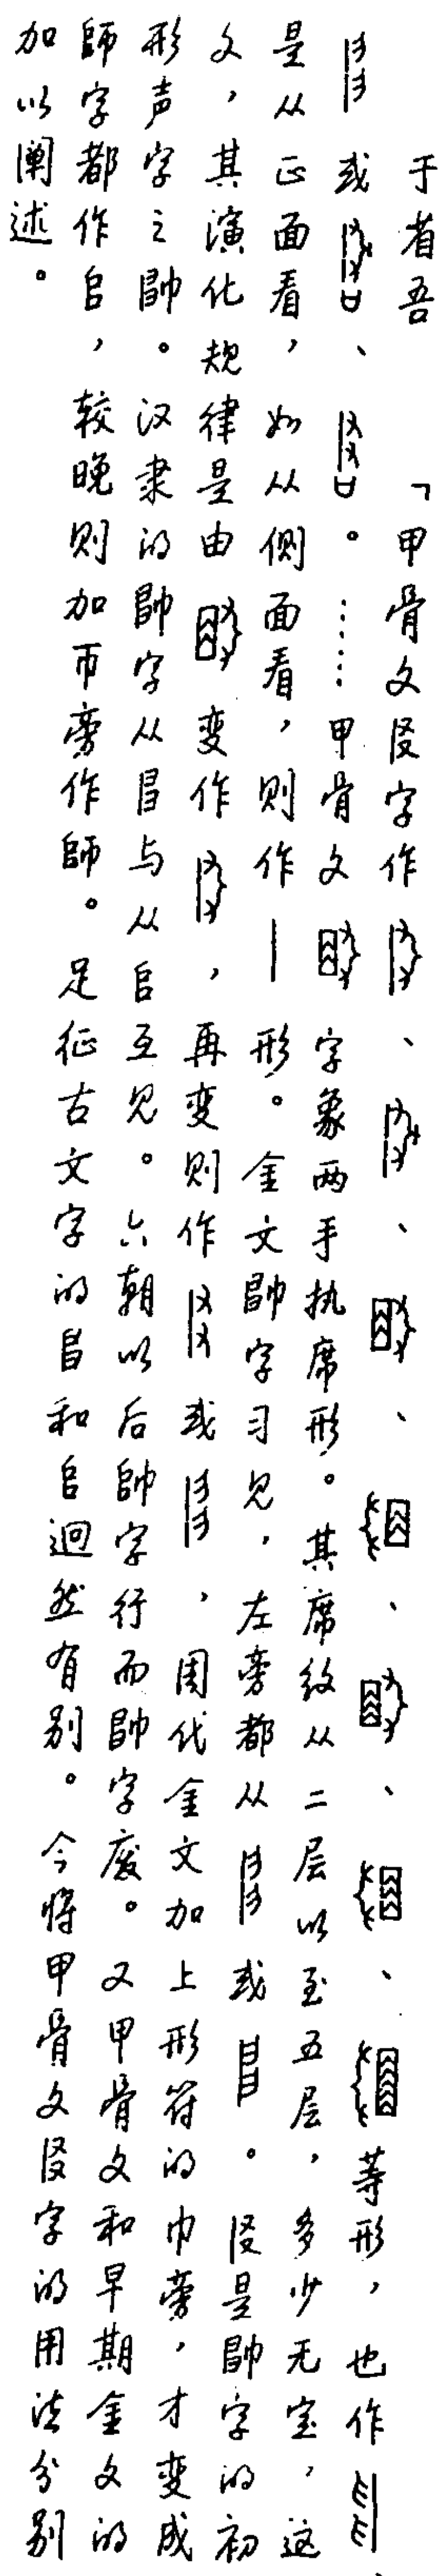 于省吾 「甲骨文字作、、、、、、等形，也作
或、。……甲骨文字象两手执席形。其席纹从二层以至五层，多少无定，这
是从正面看，如从侧面看，则作丨形。金文帥字习见，左旁都从或。是帥字的初
文，其演化规律是由变作，再变则作或，周代金文加上形符的巾旁，才变成
形声字之帥。汉隶的帥字从与从𠂤互见。六朝以后帥字行而字废。又甲骨文和早期金文的
師字都作𠂤，较晚则加帀旁作師。足征古文字的和𠂤迥然有别。今将甲骨文字的用法分别
加以阐述。